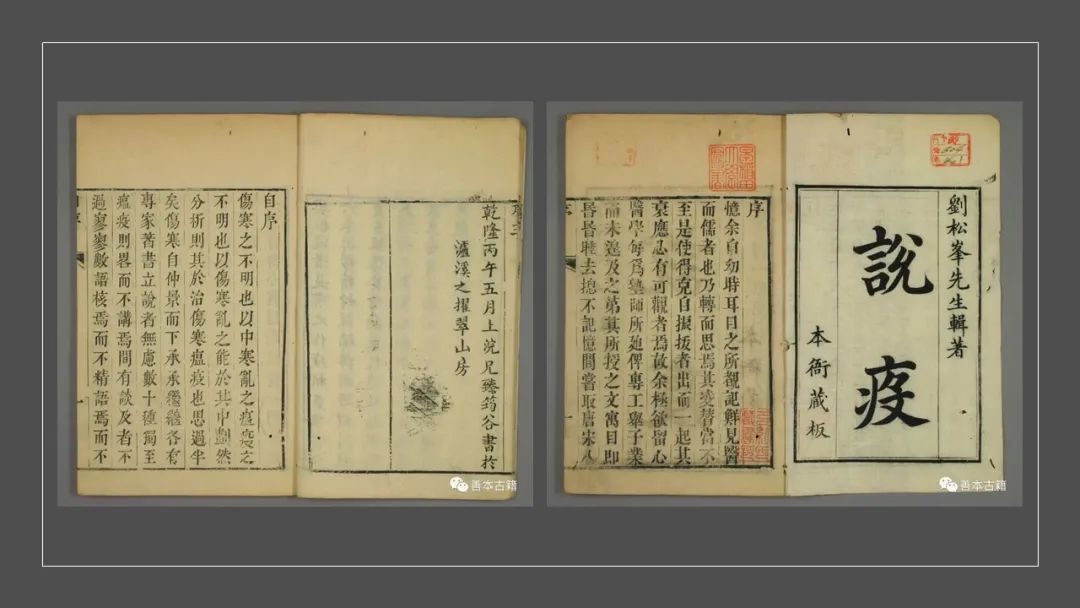 劉松峯先生輯著
說疫
本衙藏板
序
憶余自幼時耳目之所觀記鮮見醫
而儒者也乃轉而思焉其凌替當不
至是使得克自振拔者出而一起其
衰應必有可觀者焉故余極欲留心
醫學每爲塾師所廹俾專工舉子業
而未遑及之第其所授之文寓目即
昬昬睡去揔不記憶間嘗取唐宋人
善本古籍
乾隆丙午五月上浣兄臻筠谷書於
瀘溪之擢翠山房
自序
傷寒之不明也以中寒亂之瘟疫之
不明也以傷寒亂之能於其中劃然
分析則其於治傷寒瘟疫也思過半
矣傷寒自仲景而下承承繼繼各有
專家著書立說者無慮數十種獨至
瘟疫則畧而不講焉間有談及者不
過寥寥數語核焉而不精語焉而不
善本古籍